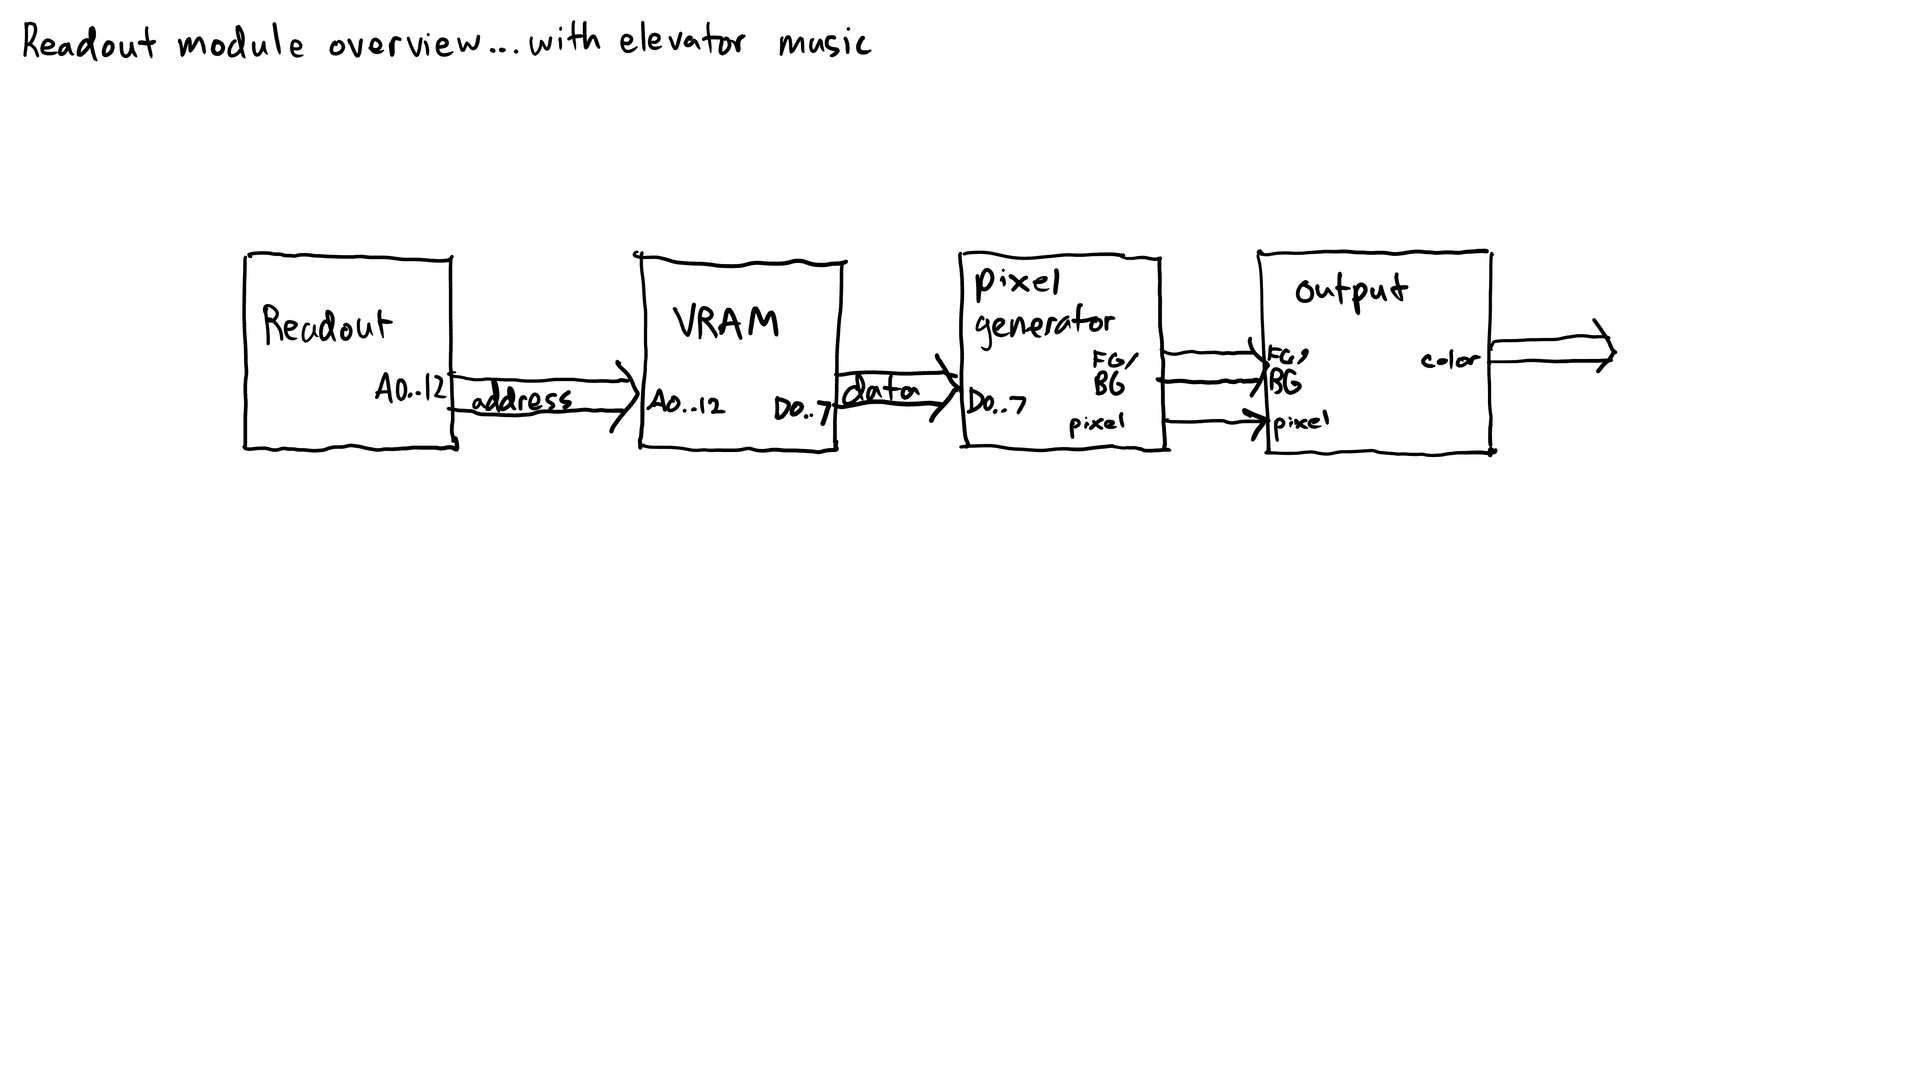 Readout module overview...with elevator music
Readout
A0..12
address
VRAM
A0..12
D0..7
data
pixel
generator
D0..7
FG/
BG
pixel
output
FG/
BG
pixel
color